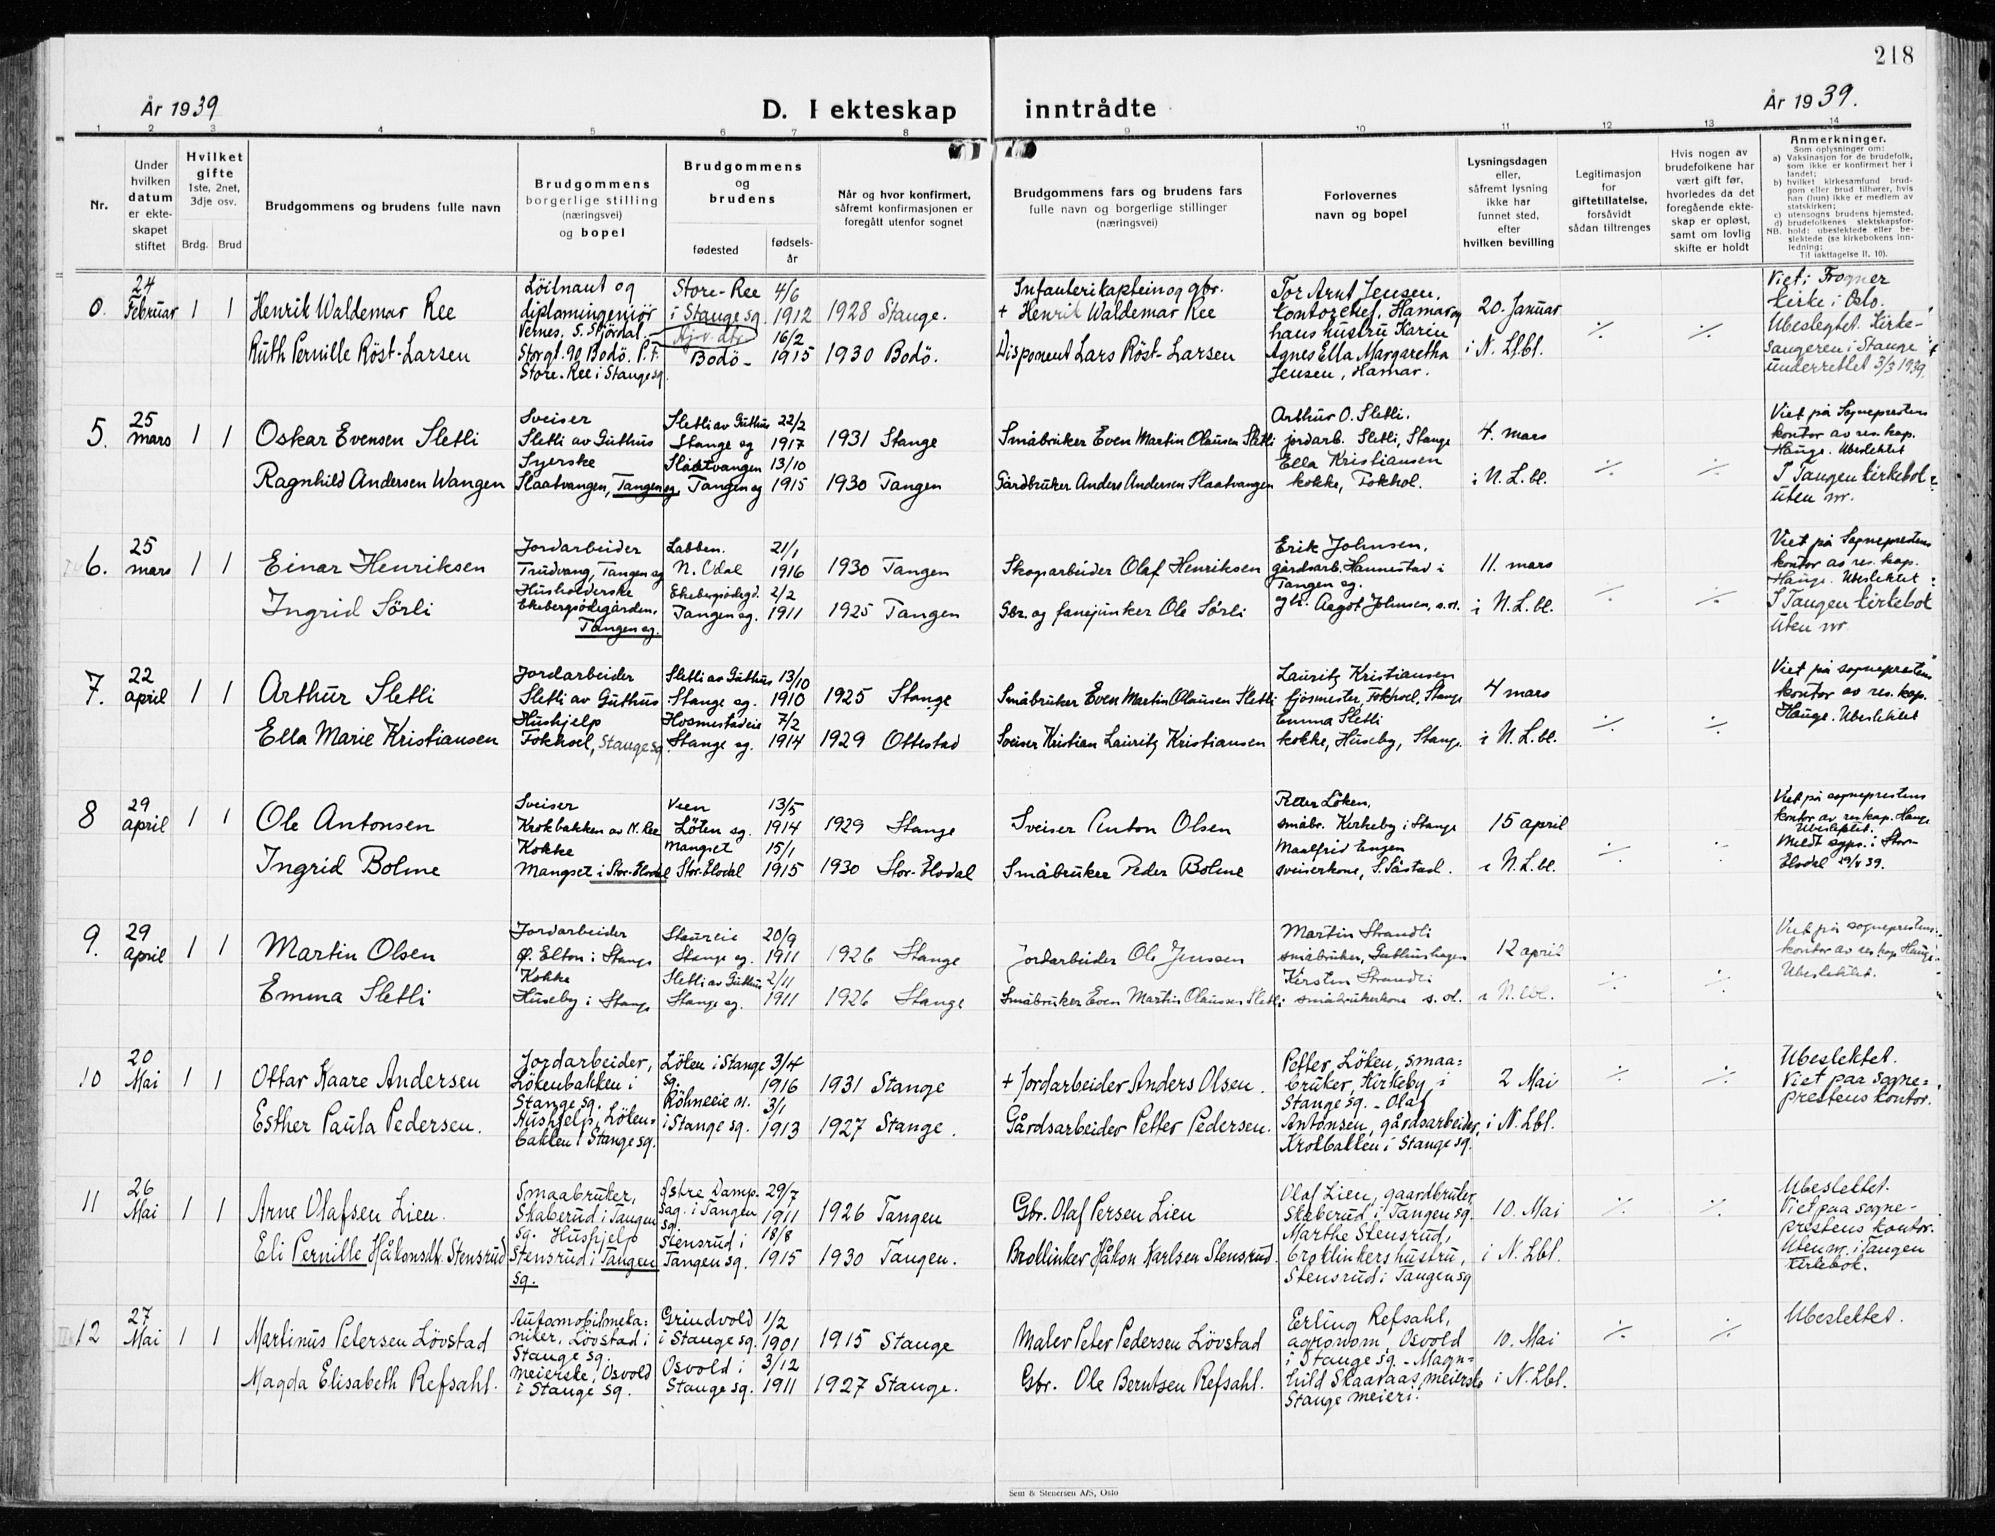 218
År 1939
D. I ekteskap inntrådte
År 1939.
1 2 3 4 5 6 7 8 9 10 11 12 13 14
Nr.
Under hvilken datum er ekteskapet stiftet
Hvilket gifte 1ste, 2net, 3dje osv.
Brdg. Brud
Brudgommens og brudens fulle navn
Brudgommens borgerlige stilling (næringsvei) og bopel
Brudgommens og brudens
fødested
fødselsår
Når og hvor konfirmert, såfremt konfirmasjonen er foregått utenfor sognet
Brudgommens fars og brudens fars fulle navn og borgerlige stillinger (næringsvei)
Forlovernes navn og bopel
Lysningsdagen eller, såfremt lysning ikke har funnet sted, efter hvilken bevilling
Legitimasjon for giftetillatelse, forsåvidt sådan tiltrenges
Hvis nogen av brudefolkene har vært gift før, hvorledes da det foregående ekteskap er opløst, samt om lovlig skifte er holdt
Anmerkninger.
Som oplysninger om:
a) Vaksinasjon for de brudefolk, som ikke er konfirmert her i landet;
b) hvilket kirkesamfund brudgom eller brud tilhører, hvis han (hun) ikke er medlem av statskirken;
c) utensogns brudens hjemsted.
d) brudefolkenes slektskapsforhold: ubeslektede eller beslektede (se kirkebokens innledning;
NB.
Til iakttagelse II. 10).
0. 24 Februar 1 1 Henrik Waldemar Ree
Løitnant og diplomingeniör Vernes. S. Stjördal.
Store-Ree i Stange sg. 4/6 1912 1928 Stange.
+ Infanterikaptein og gbr. Henrik Waldemar Ree
Tor Arnt Jensen, kontorchef, Hamar og hans hustru Karin Agnes Ella Margaretha Jensen, Hamar.
20. Januar i N. Lbl.
Viet i Frogner Kirke i Oslo. Ubeslegtet. Kirkesangeren i Stange underrettet 3/3 1939.
Ruth Pernille Röst-Larsen
Storgt. 90 Bodö. P.t. Store-Ree i Stange sg.
Bodö 16/2 1915 1930 Bodö.
Disponent Lars Röst-Larsen
5. 25 mars 1 1 Oskar Evensen Sletli
Sveiser Sletli av Guthus
Sletli av Guthus Stange sg 22/2 1917 1931 Stange
Småbruker Even Martin Olausen Sletli
Arthur O. Sletli. jordarb. Sletli, Stange
4. mars
Viet på Sogneprestens kontor av res. kap. Hauge. Ubeslektet
Ragnhild Andersen Wangen
Syerske Slaatvangen, Tangen sg
Slaatvangen Tangen sg 13/10 1915 1930 Tangen
Gårdbruker Anders Andersen Slaatvangen
Ella Kristiansen kokke, Fokhol.
i N. L. bl.
I Tangen kirkebok uten nr.
6. 25 mars 1 1 Einar Henriksen
Jordarbeider Trudvang, Tangen sg
Labben. N. Odal 21/1 1916 1930 Tangen
Skogsarbeider Olaf Henriksen
Erik Johnsen, gårdsarb. Hannestad i Tangen sg.
11. mars
Viet på Sogneprestens kontor av res. kap. Hauge. Ubeslektet
Ingrid Sörli
Husholderske Ekebergödegården, Tangen sg.
Ekebergödegd. Tangen sg. 2/2 1911 1925 Tangen
Gbr. og fanejunker Ole Sörli
Aagot Johnsen, s.st.
i N. L. bl.
I Tangen kirkebok uten nr
7. 22 april 1 1 Arthur Sletli
Jordarbeider Sletli av Guthus
Sletli av Guthus Stange sg. 13/10 1910 1925 Stange
Småbruker Even Martin Olausen Sletli
Lauritz Kristiansen fjösmester, Fokhoel, Stange
4 mars
Viet på sogneprestens kontor av res. kap. Hauge. Ubeslektet
Ella Marie Kristiansen
Hushjelp Fokhoel, Stange sg.
Hosmestadeie Stange sg. 7/2 1914 1929 Ottestad
Sveiser Kristian Lauritz Kristiansen
Emma Sletli kokke, Huseby, Stange
i N. L. bl.
8 29 april 1 1 Ole Antonsen
Sveiser Krokbakken av N. Ree
Veen Löten sg. 13/5 1914 1929 Stange
Sveiser Anton Olsen
Petter Löken, småbr. Kirkeby i Stange
15 april
Viet på sogneprestens kontor av res. kap. Hauge Ubeslektet.
Ingrid Bolme
Kokke Mangset i Stor-Elvdal
Mangset Stor-Elvdal 15/1 1915 1930 Stor-Elvdal
Småbruker Peder Bolme
Maalfrid Engen sveiserkone, S. Såstad.
i N. L. bl.
Meldt sgpr. i Stor-Elvdal 29/4 39.
9. 29 april 1 1 Martin Olsen
Jordarbeider Ø. Elton i Stange
Staureie Stange sg. 20/9 1911 1926 Stange
Jordarbeider Ole Jensen
Martin Strandli småbruker, Guthushagen
12 april
Viet på sogneprestens kontor av res kap Hauge Ubeslektet.
Emma Sletli
Kokke Huseby i Stange
Sletli av Guthus Stange sg. 2/11 1911 1926 Stange
Småbruker Even Martin Olaussen Sletli
Kirsten Strandli småbrukerkone s. st.
i N. lbl.
10 20 Mai 1 1 Ottar Kaare Andersen
Jordarbeider, Lökenbakken i Stange sg.
Löken i Stange sg. 3/4 1916 1931 Stange
+ Jordarbeider Anders Olsen.
Petter Löken, smaabruker, Kirkeby i Stange sg. - Olaf Antonsen, gårdsarbeider, Krokbakken i Stange sg.
2 Mai i N. Lbl.
Ubeslektet. Viet paa sogneprestens kontor.
Esther Paula Pedersen.
Hushjelp, Lökenbakken i Stange sg.
Röhneeie n. i Stange sg. 3/1 1913 1927 Stange.
Gårdsarbeider Petter Pedersen.
11 26 Mai 1 1 Arne Olafsen Lien.
Smaabruker, Skaberud i Tangen sg.
Østre Dampsag. i Tangen sg. 29/7 1911 1926 Tangen
Gbr. Olaf Persen Lien
Olaf Lien, gaardbruker, Skaberud i Tangen sg. Marthe Stensrud, broklinkershustru, Stensrud i Tangen sg
10. Mai i N. Lbl.
Ubeslektet. Viet paa sogneprestens kontor. Uten nr. i Tangen kirkebok.
Eli Pernille Håkonsdtr. Stensrud
Hushjelp Stensrud i Tangen sg.
Stensrud i Tangen sg. 18/8 1915 1930 Tangen.
Broklinker Håkon Karlsen Stensrud.
12 27 Mai 1 1 Martinus Petersen Lövstad
Automobilmekaniker, Lövstad i Stange sg.
Grindvold i Stange sg. 1/2 1901 1915 Stange
Maler Peter Pedersen Lövstad
Erling Refsahl, agronom, Osvold i Stange sg. - Magnhild Skaaraas, meierske Stange meieri.
10. Mai i N. Lbl.
Ubeslektet.
Magda Elisabeth Refsahl.
meierske, Osvold i Stange sg.
Osvold i Stange sg. 3/12 1911 1927 Stange.
Gbr. Ole Berntsen Refsahl.
Sem & Stenersen A/S, Oslo